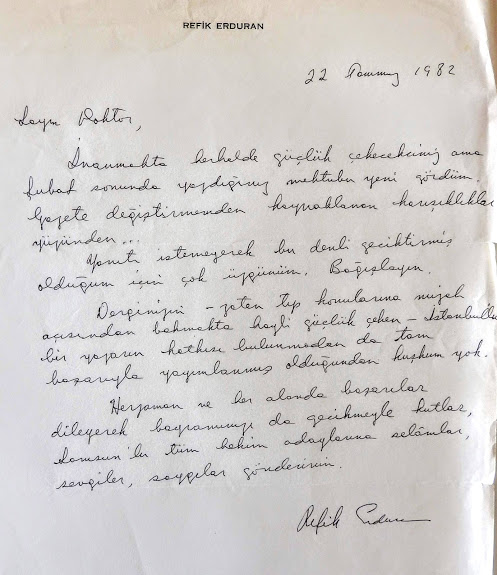 REFİK ERDURAN
22 Temmuz 1982
Sayın Doktor,
İnanmakta herhalde güçlük çekeceksiniz ama
Şubat sonunda yazdığınız mektubu yeni gördüm.
Gazete değiştirmemden kaynaklanan karışıklıklar
yüzünden...
Yanıtı istemeyerek bu denli geciktirmiş
olduğum için çok üzgünüm. Bağışlayın.
Derginizin - zaten tıp konularına mizah
açısından bakmakta hayli güçlük çeken - İstanbullu
bir yazarın katkısı bulunmadan da tam
başarıyla yayımlanmış olduğundan kuşkum yok.
Herzaman ve her alanda başarılar
dileyerek bayramınızı da gecikmeyle kutlar,
Samsun'lu tüm hekim adaylarına selâmlar,
sevgiler, saygılar gönderirim.
Refik Erduran